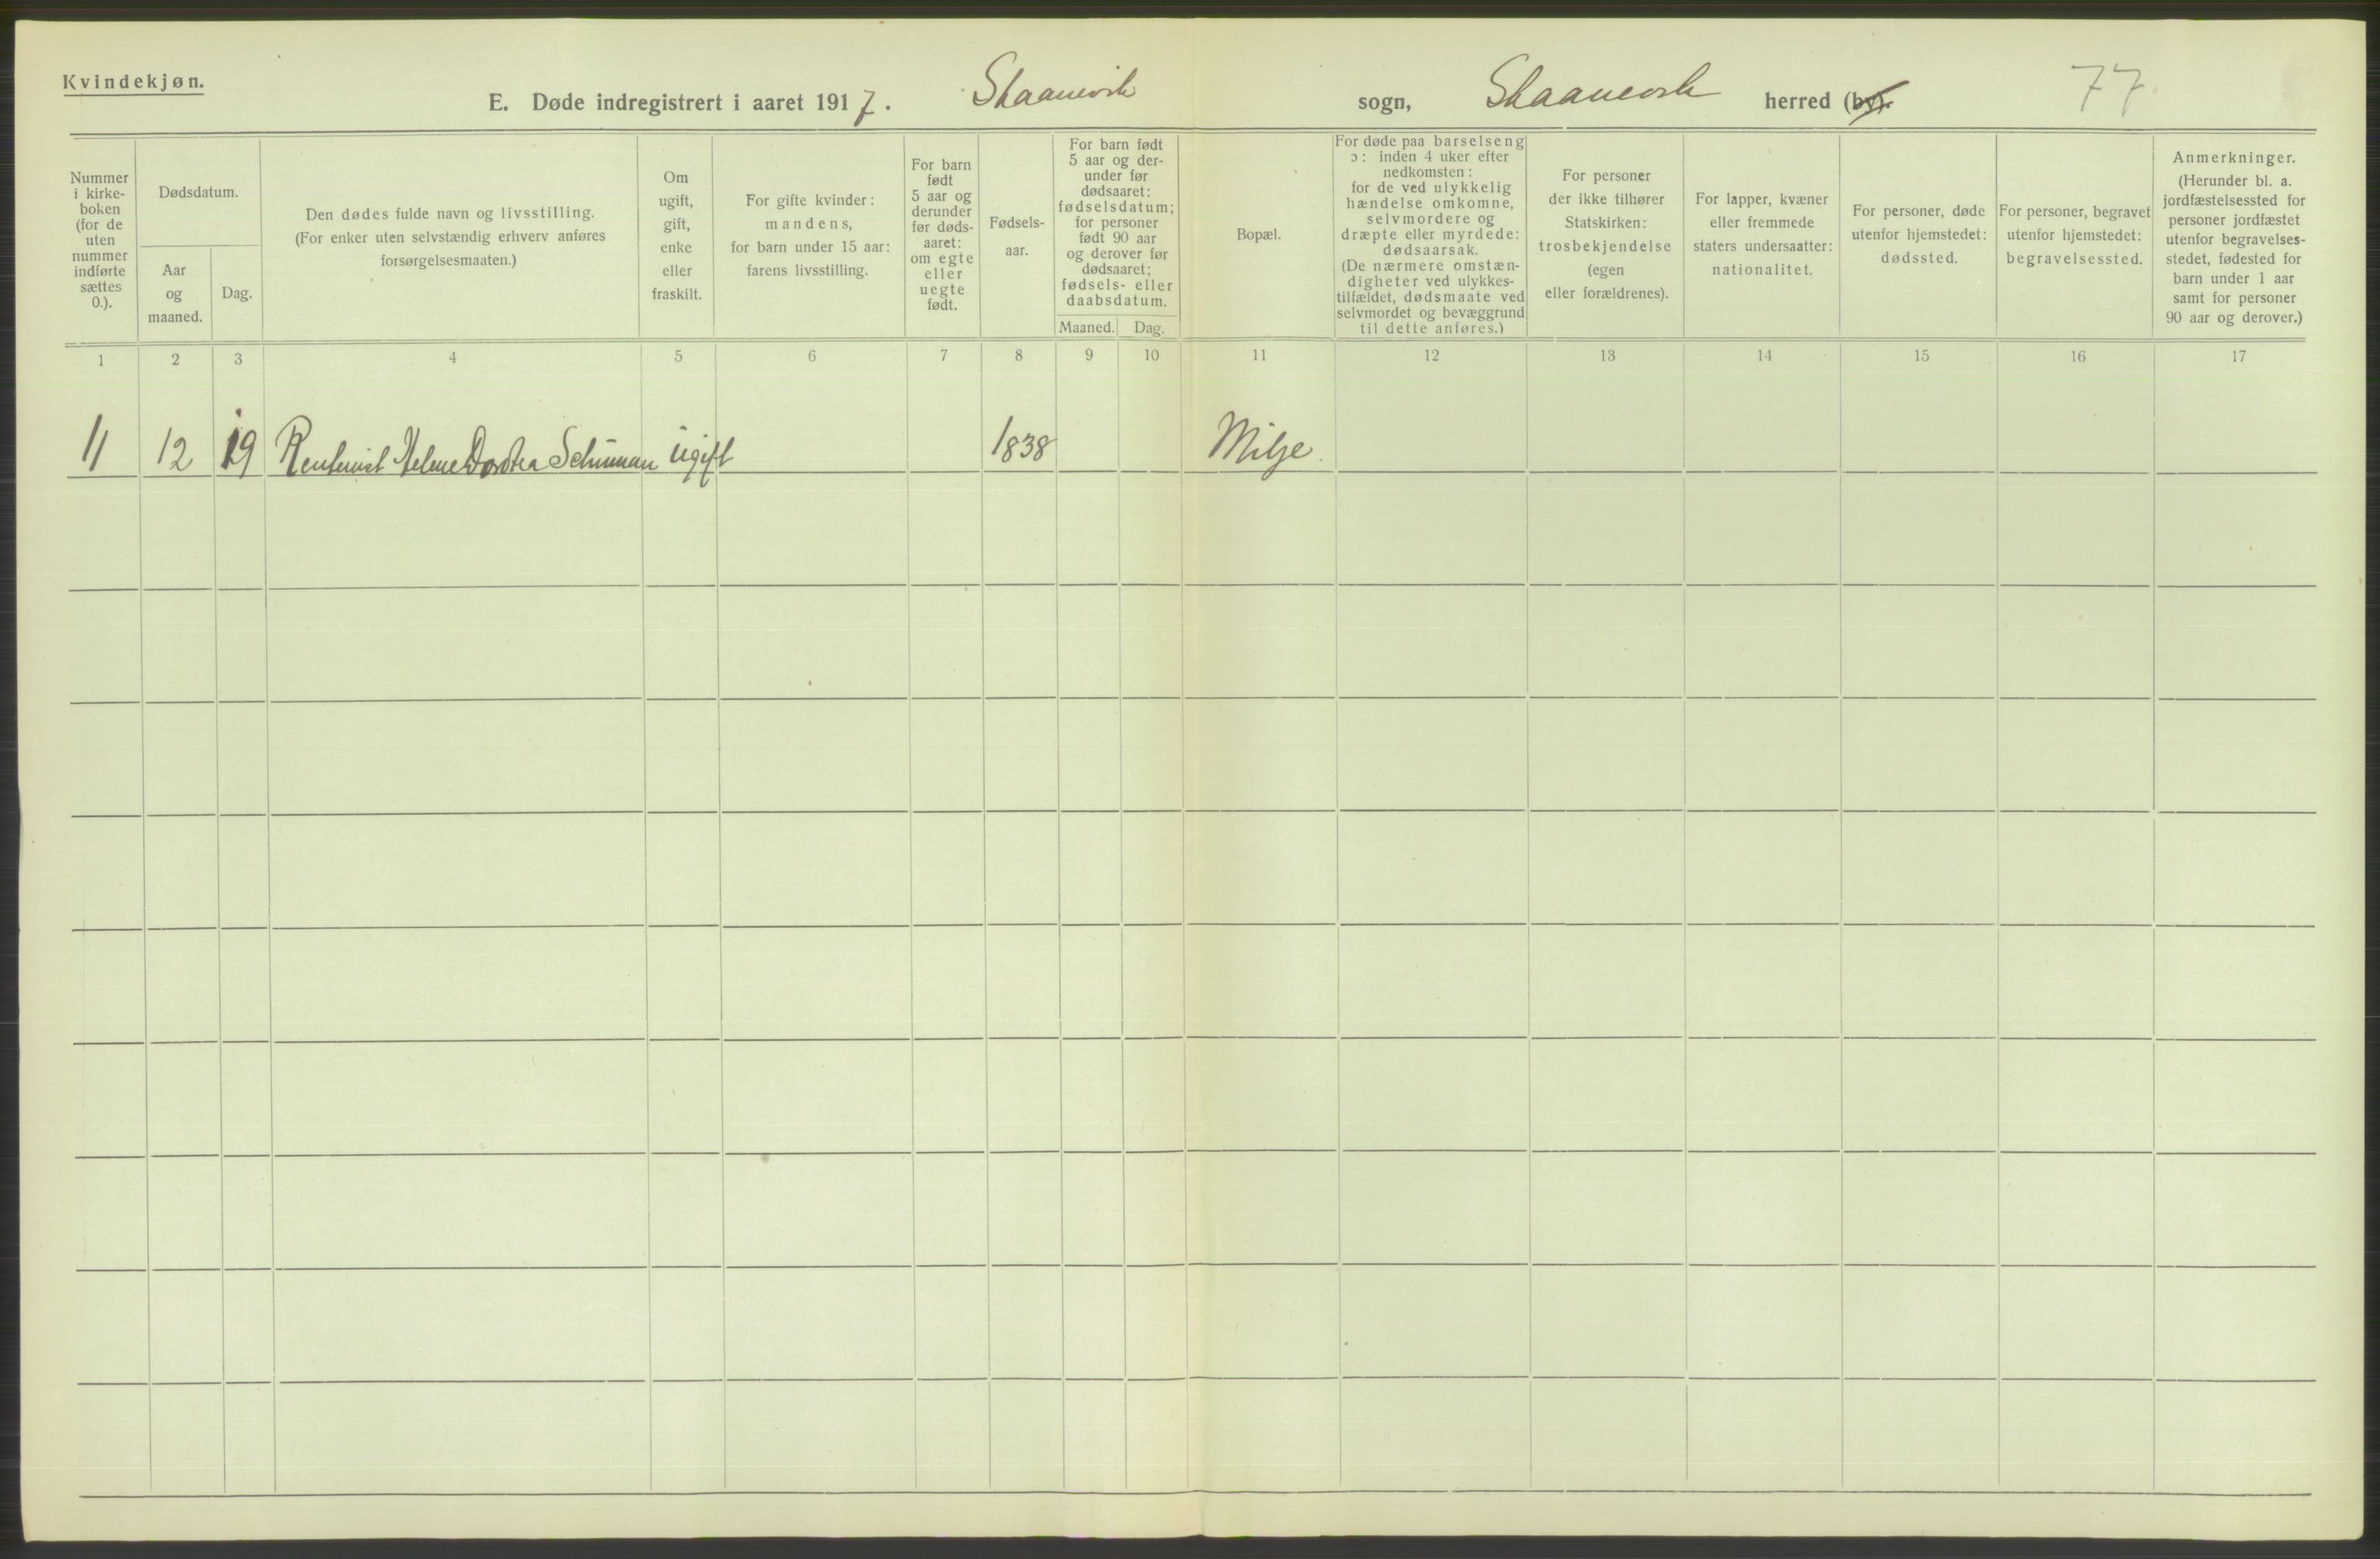 Kvindekjøn.
E. Døde indregistrert i aaret 1917. Skaanevik sogn, Skaanevik herred (by). 77
Nummer
i kirke-
boken
(for de
uten
nummer
indførte
sættes
0.).
Dødsdatum.
Aar
og
maaned.
Dag.
Den dødes fulde navn og livsstilling.
(For enker uten selvstændig erhverv anføres
forsørgelsesmaaten.)
Om
ugift,
gift,
enke
eller
fraskilt.
For gifte kvinder:
mandens,
for barn under 15 aar:
farens livsstilling.
For barn
født
5 aar og
derunder
før døds-
aaret:
om egte
eller
uegte
født.
Fødsels-
aar.
For barn født
5 aar og der-
under før
dødsaaret:
fødselsdatum;
for personer
født 90 aar
og derover før
dødsaaret;
fødsels- eller
daabsdatum.
Maaned. Dag.
Bopæl.
For døde paa barselseng
ɔ: inden 4 uker efter
nedkomsten:
for de ved ulykkelig
hændelse omkomne,
selvmordere og
dræpte eller myrdede:
dødsaarsak.
(De nærmere omstæn-
digheter ved ulykkes-
tilfældet, dødsmaate ved
selvmordet og bevæggrund
til dette anføres.)
For personer
der ikke tilhører
Statskirken:
trosbekjendelse
(egen
eller forældrenes).
For lapper, kvæner
eller fremmede
staters undersaatter:
nationalitet.
For personer, døde
utenfor hjemstedet:
dødssted.
For personer, begravet
utenfor hjemstedet:
begravelsessted.
Anmerkninger.
(Herunder bl. a.
jordfæstelsessted for
personer jordfæstet
utenfor begravelses-
stedet, fødested for
barn under 1 aar
samt for personer
90 aar og derover.)
1 2 3 4 5 6 7 8 9 10 11 12 13 14 15 16 17
11 12 19 Rentenist Helene Dorthea Schuman ugift 1838 Milje